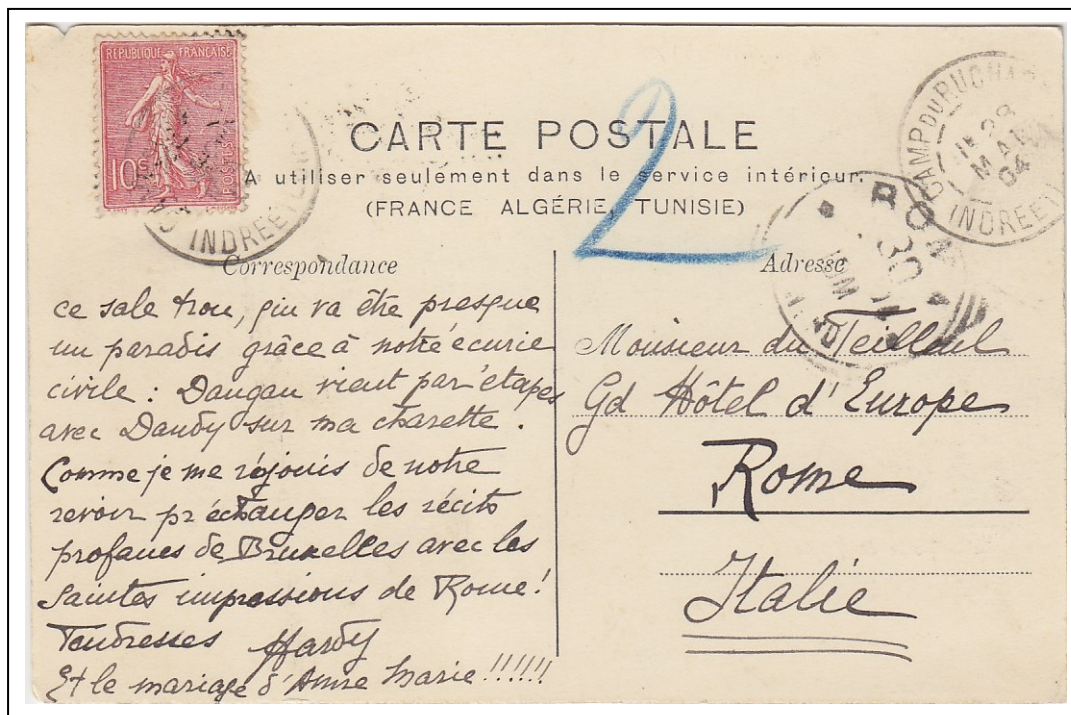 REPUBLIQUE FRANÇAISE
10c
POSTES
INDRE ET
CARTE POSTALE
A utiliser seulement dans le service intérieur.
(FRANCE ALGÉRIE, TUNISIE)
2
CAMP DU RUCHARD
28
MAI
04
INDRE ET
ROMA
30
Correspondance
ce sale trou, qui va être presque
un paradis grâce à notre écurie
civile : Daugau vient par étapes
avec Dandy sur ma charette.
Comme je me réjouis de notre
revoir pr échanger les récits
profanes de Bruxelles avec les
Saintes impressions de Rome!
Tendresses Hardy
Et le mariage d'Anne Marie !!!!!!
Adresse
Monsieur du Teilleul
Gd Hôtel d'Europe
Rome
Italie